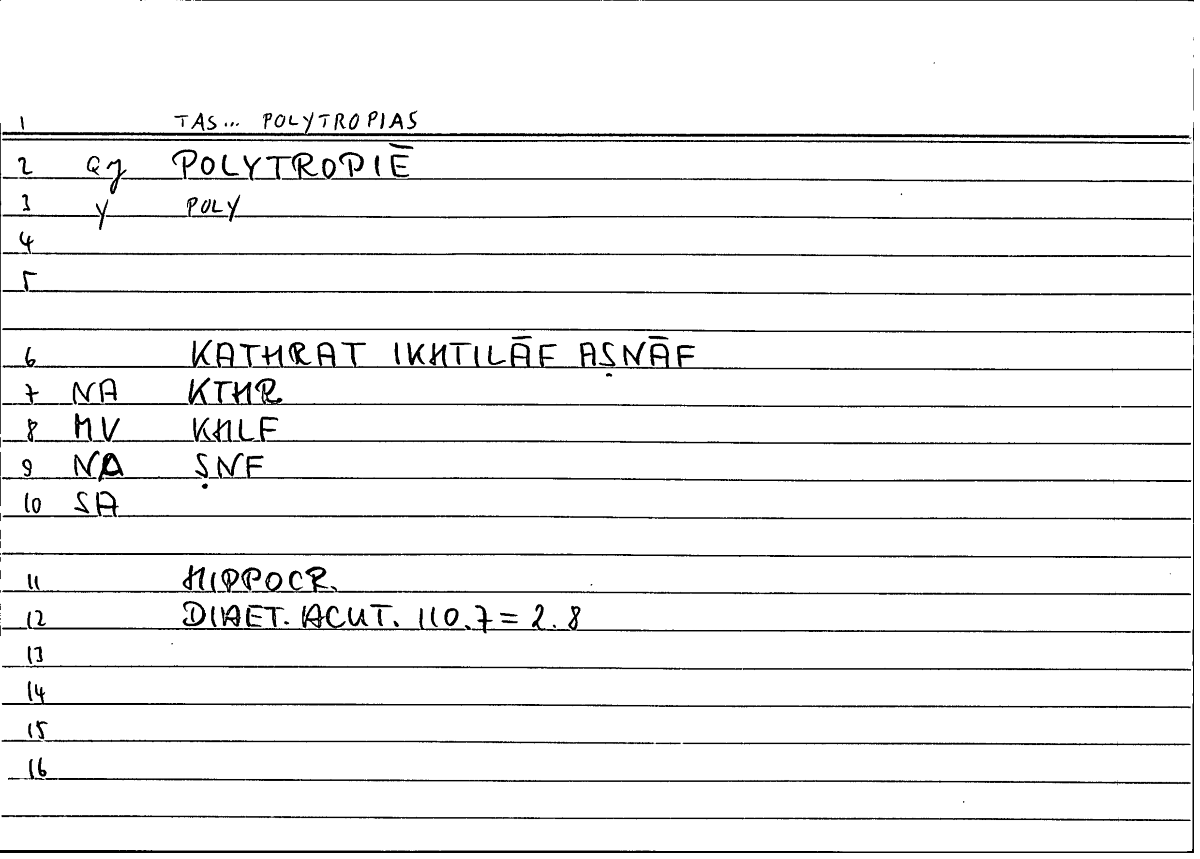 1 TAS... POLYTROPIAS
2 qy POLYTROPIĒ
3 y POLY
4
5
6 KATHRAT IKHTILĀF AṢNĀF
7 NA KTHR
8 MV KHLF
9 NA ṢNF
10 SA
11 HIPPOCR.
12 DIAET. ACUT. 110.7 = 2.8
13
14
15
16